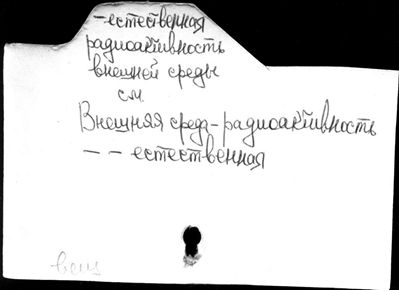 -естественная
радиоактивность
внешней среды
см.
Внешняя среда-радиоактивность
- - естественная